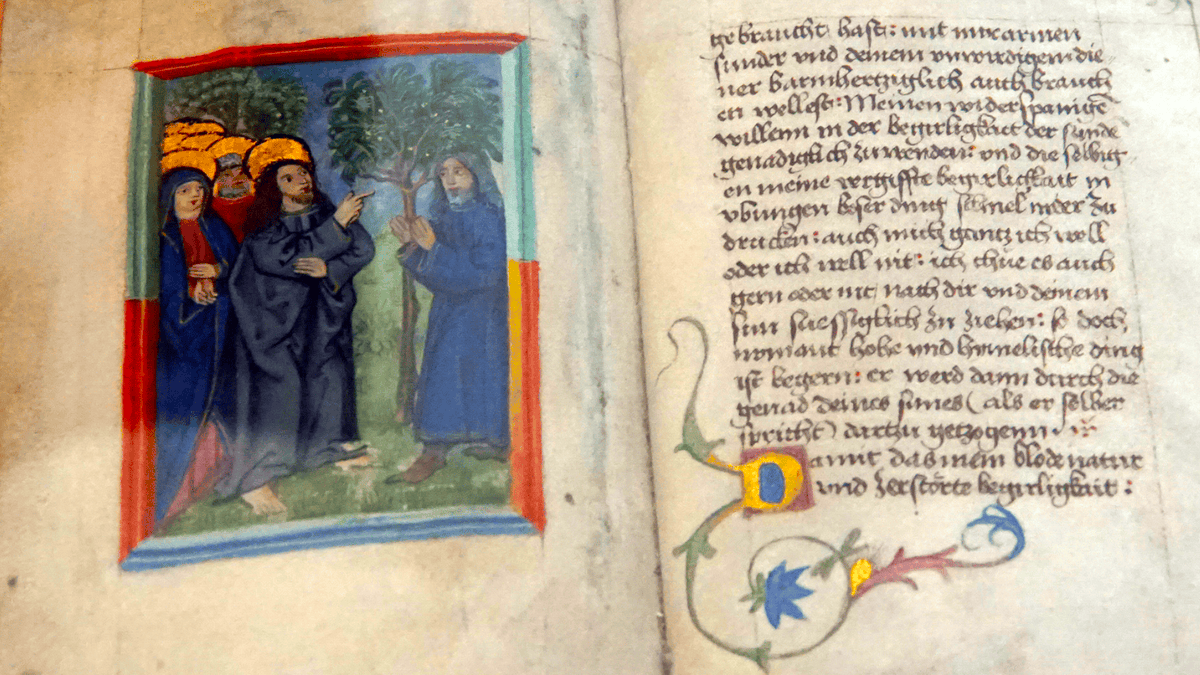 gebraucht hast: mit mir armen
sunder vnd deinem vnwirdigem die-
ner barmhertziglich auch brauch
en wellest: Meinen widerspanigē
willenn in der begirligkait der sünde
genadiglich zu wenden: vnd die selbig-
en meine vergiffte begirlickait in
vbungen beser ding schnel nider zu
drucken: auch mich gantz ich woll
oder ich well nit: ich thue es auch
gern oder nit, nach dir vnd deinem
sun suessiglich zu ziehen: so doch
niemant hohe vnd himelische ding
ist begern: er werd dann durch die
genad deines sunes (als er selber
spricht) dartzu getzogenn
Damit das mein blode natur
vnd zerstörte begirligkait: